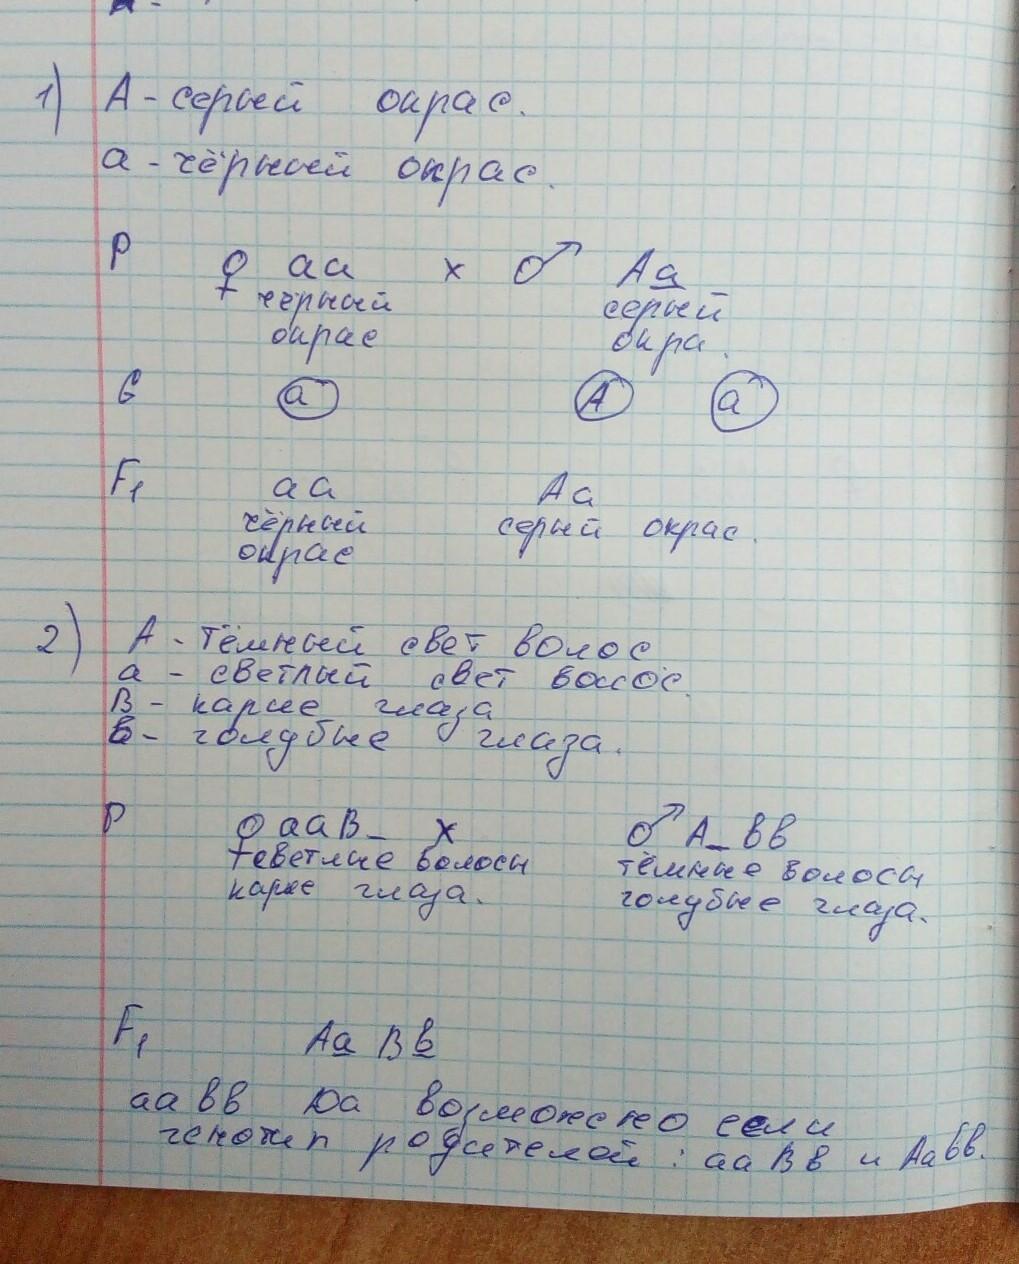 1) А - серый окрас.
а - чёрный окрас.
P ♀ аа x ♂ Аа
чёрный серый
окрас окра.
G а А а
F1 аа Аа
чёрный серый окрас.
окрас
2) А - Тёмный свет волос
а - светлый свет волос.
В - карие глаза
в - голубые глаза.
P ♀ ааВ_ x ♂ А_вв
светлые волосы тёмные волосы
карие глаза. голубые глаза.
F1 Аа Вв
аавв Да возможно если
генотип родителей: ааВв и Аавв.